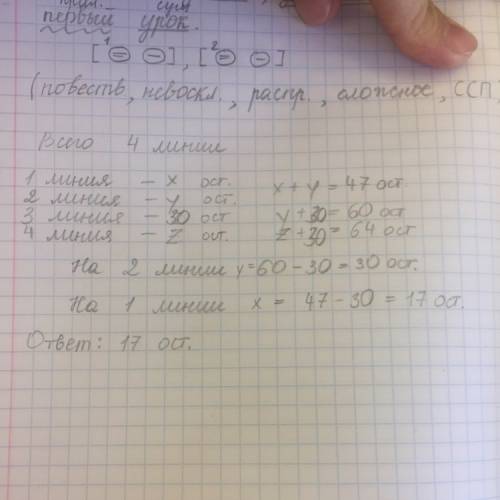 первый урок.
[¹= –], [²= –]
(повеств, невоскл., распр., сложное, ССП
Всего 4 линии
1 линия – x ост. x + y = 47 ост.
2 линия – y ост.
3 линия – 30 ост y + 30 = 60 ост
4 линия – z ост. z + 30 = 64 ост
На 2 линии y = 60 – 30 = 30 ост.
На 1 линии x = 47 – 30 = 17 ост.
Ответ: 17 ост.